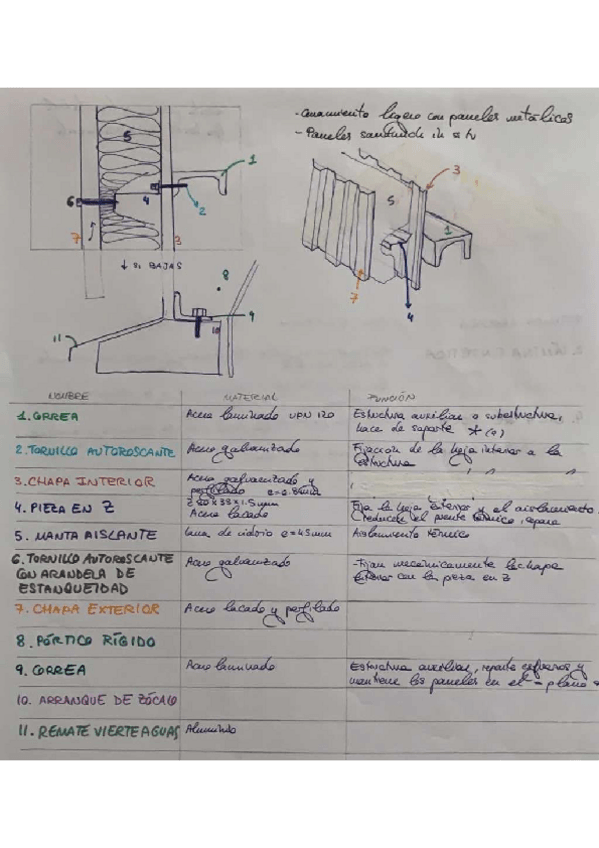 - Cerramiento ligero con paneles metálicos
- Paneles sandwich in situ
5
1
6
4
2
7
3
↓ si BAJAS
3
5
1
7
4
8
9
10
11
NOMBRE MATERIAL FUNCIÓN
1. CORREA Acero laminado UPN 120 Estructura auxiliar o subestructura,
hace de soporte *(9)
2. TORNILLO AUTOROSCANTE Acero galvanizado Fijación de la hoja interior a la
estructura
3. CHAPA INTERIOR Acero galvanizado y
perfilado e=0.8mm
" " "
4. PIEZA EN Z Z 40x38x1.5mm
Acero lacado
Fija la hoja exterior y el aislamiento.
Reducen el puente térmico, separa
5. MANTA AISLANTE Lana de vidrio e=45mm Aislamiento térmico
6. TORNILLO AUTOROSCANTE
CON ARANDELA DE
ESTANQUEIDAD
Acero galvanizado
- Fijan mecánicamente la chapa
exterior con la pieza en Z
7. CHAPA EXTERIOR Acero lacado y perfilado
8. PÓRTICO RÍGIDO
9. CORREA Acero laminado Estructura auxiliar, reparte esfuerzos y
mantiene los paneles en el = plano
10. ARRANQUE DE ZÓCALO
11. REMATE VIERTEAGUAS Aluminio